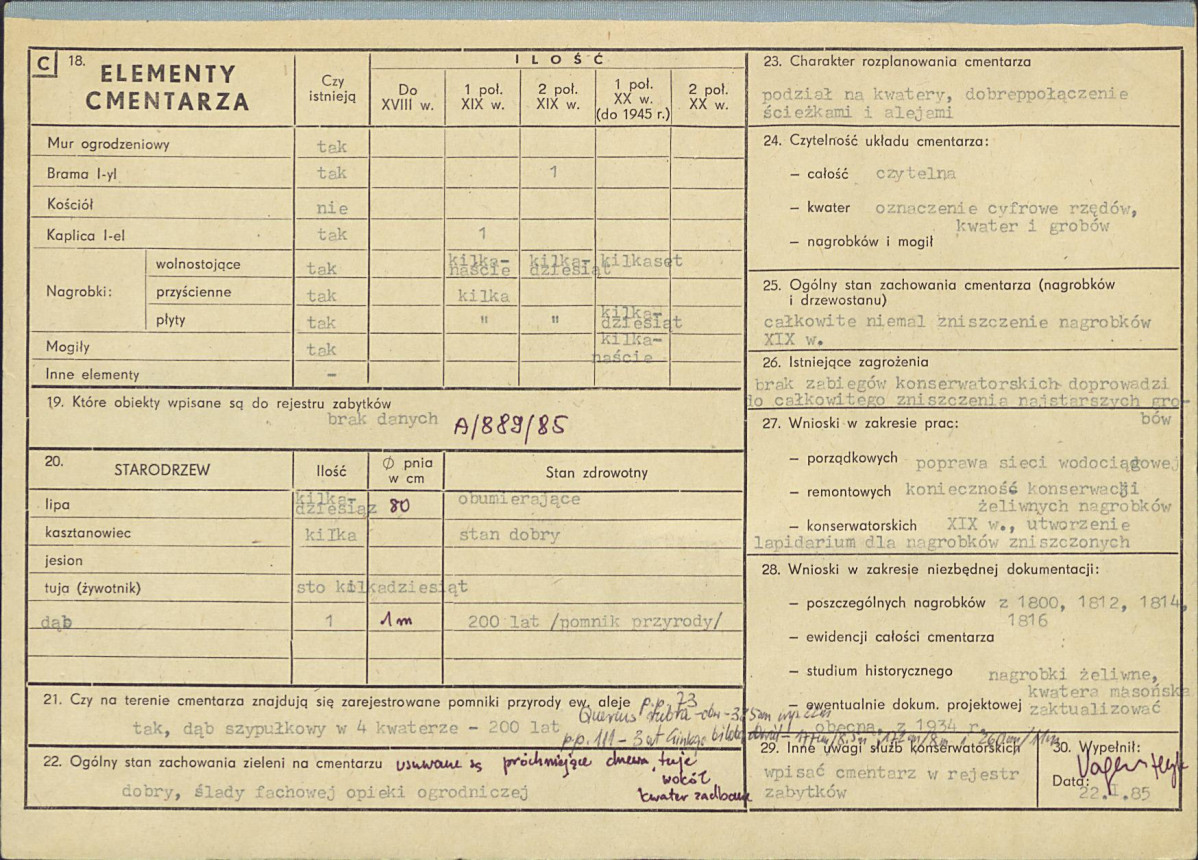 C 18. ELEMENTY CMENTARZA
Czy istnieją
ILOŚĆ
Do XVIII w.
1 poł. XIX w.
2 poł. XIX w.
1 poł. XX w. (do 1945 r.)
2 poł. XX w.
Mur ogrodzeniowy tak
Brama I-yl tak 1
Kościół nie
Kaplica I-el tak 1
Nagrobki:
wolnostojące tak kilka-naście kilka-dziesiąt kilkaset
przyścienne tak kilka
płyty tak " " kilka-dziesiąt
Mogiły tak kilka-naście
Inne elementy -
19. Które obiekty wpisane są do rejestru zabytków
brak danych A/889/85
20. STARODRZEW Ilość Ø pnia w cm Stan zdrowotny
lipa kilka-dziesiąz 80 obumierające
kasztanowiec kilka stan dobry
jesion
tuja (żywotnik) sto kilkadziesiąt
dąb 1 1m 200 lat /pomnik przyrody/
21. Czy na terenie cmentarza znajdują się zarejestrowane pomniki przyrody ew. aleje p.p. 73
tak, dąb szypułkowy w 4 kwaterze - 200 lat
Quercus
pp. 111 - 3 szt Ginkgo biloba
22. Ogólny stan zachowania zieleni na cmentarzu usuwane są próchniejące drzewa, tuje
wokół
kwater zadbane
dobry, ślady fachowej opieki ogrodniczej
23. Charakter rozplanowania cmentarza
podział na kwatery, dobreppołączenie
ścieżkami i alejami
24. Czytelność układu cmentarza:
– całość czytelna
– kwater oznaczenie cyfrowe rzędów,
kwater i grobów
– nagrobków i mogił
25. Ogólny stan zachowania cmentarza (nagrobków
i drzewostanu)
całkowite niemal zniszczenie nagrobków
XIX w.
26. Istniejące zagrożenia
brak zabiegów konserwatorskich doprowadzi
do całkowitego zniszczenia najstarszych gro-
bów
27. Wnioski w zakresie prac:
– porządkowych poprawa sieci wodociągowej
– remontowych konieczność konserwacji
żeliwnych nagrobków
– konserwatorskich XIX w., utworzenie
lapidarium dla nagrobków zniszczonych
28. Wnioski w zakresie niezbędnej dokumentacji:
– poszczególnych nagrobków z 1800, 1812, 1814,
1816
– ewidencji całości cmentarza
– studium historycznego nagrobki żeliwne,
kwatera masońska
– ewentualnie dokum. projektowej zaktualizować
obecną, z 1934 r.
29. Inne uwagi służb konserwatorskich
wpisać cmentarz w rejestr
zabytków
30. Wypełnił:
Data:
22.I.85